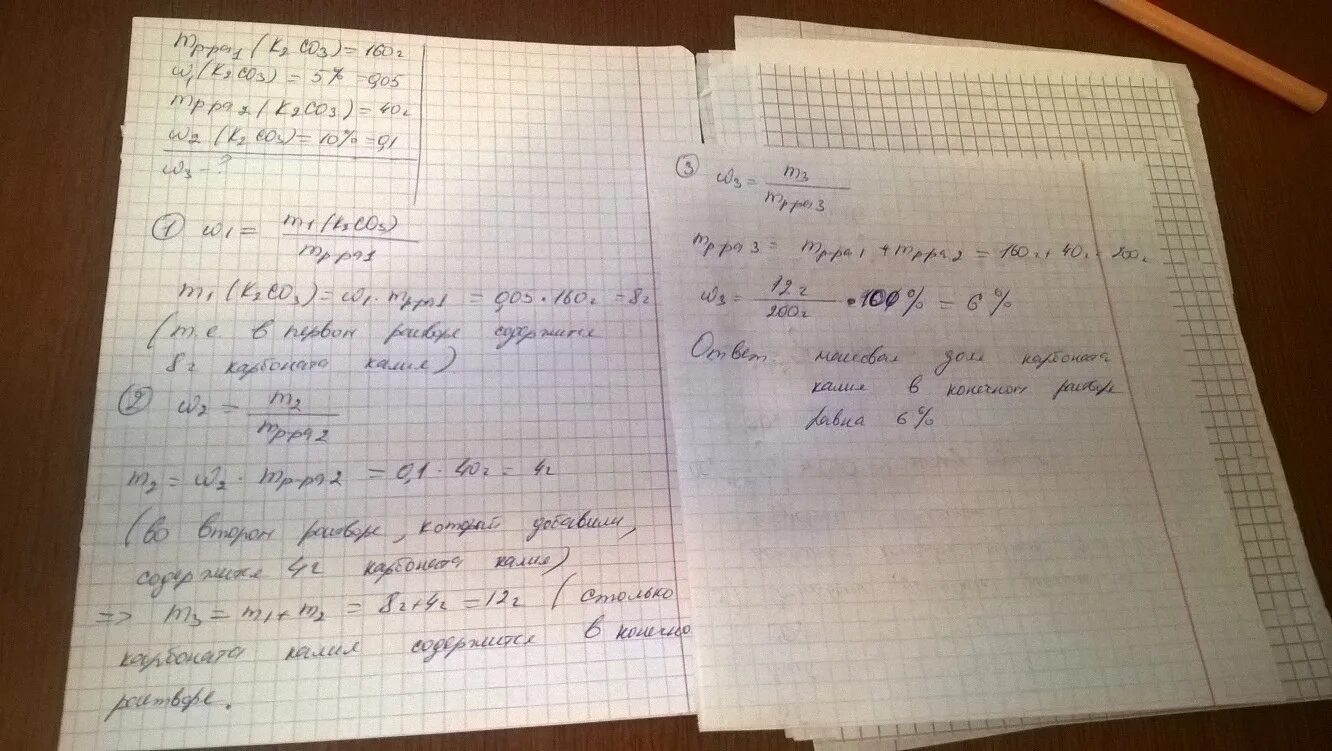 mр-ра1 (K2CO3) = 160г
ω1 (K2CO3) = 5% = 0,05
mр-ра2 (K2CO3) = 40г
ω2 (K2CO3) = 10% = 0,1
ω3 - ?
① ω1 = m1(K2CO3) / mр-ра1
m1 (K2CO3) = ω1 · mр-ра1 = 0,05 · 160г = 8г
(т.е. в первом растворе содержится
8г карбоната калия)
② ω2 = m2 / mр-ра2
m2 = ω2 · mр-ра2 = 0,1 · 40г = 4г
(во втором растворе, который добавили,
содержится 4г карбоната калия)
=> m3 = m1 + m2 = 8г + 4г = 12г (столько
карбоната калия содержится в конечно
растворе.
③ ω3 = m3 / mр-ра3
mр-ра3 = mр-ра1 + mр-ра2 = 160г + 40г = 200г
ω3 = 12г / 200г · 100% = 6%
Ответ: массовая доля карбоната
калия в конечном растворе
равна 6%